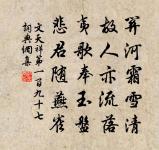 關河霜雪清
故人亦流落
夷歌奉玉盤
悲君随燕雀
文天祥第一百九十七
詞典網集